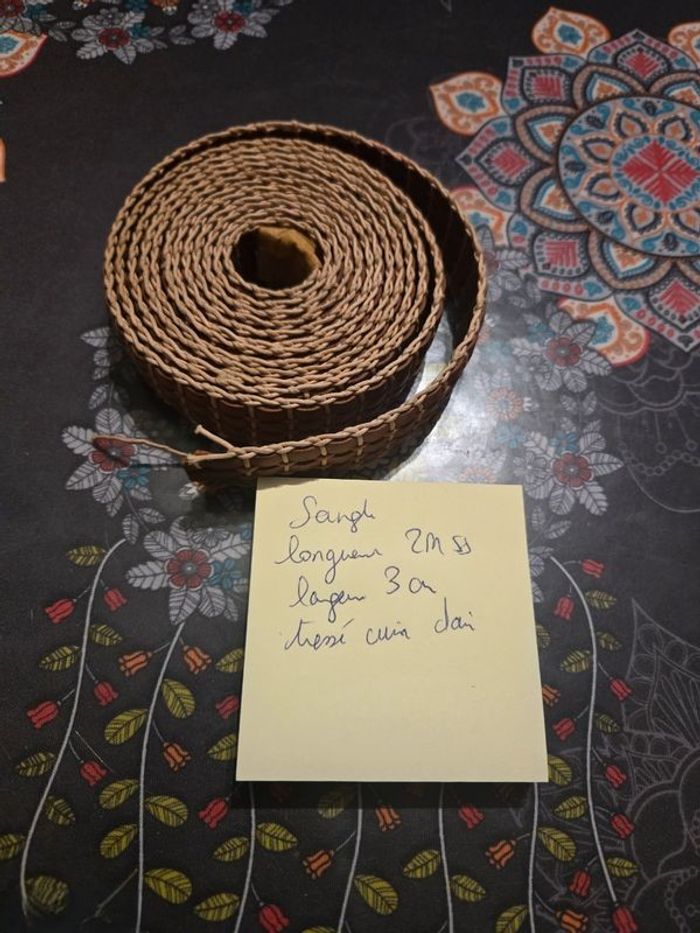 Sangle
longueur 2M 55
largeur 3 cm
tressé cuir clair